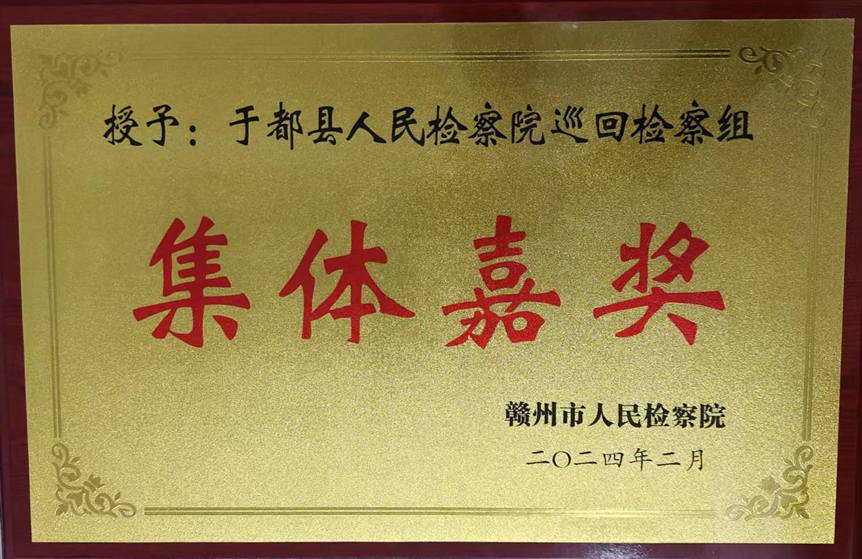 授予：于都县人民检察院巡回检察组
集体嘉奖
赣州市人民检察院
二〇二四年二月